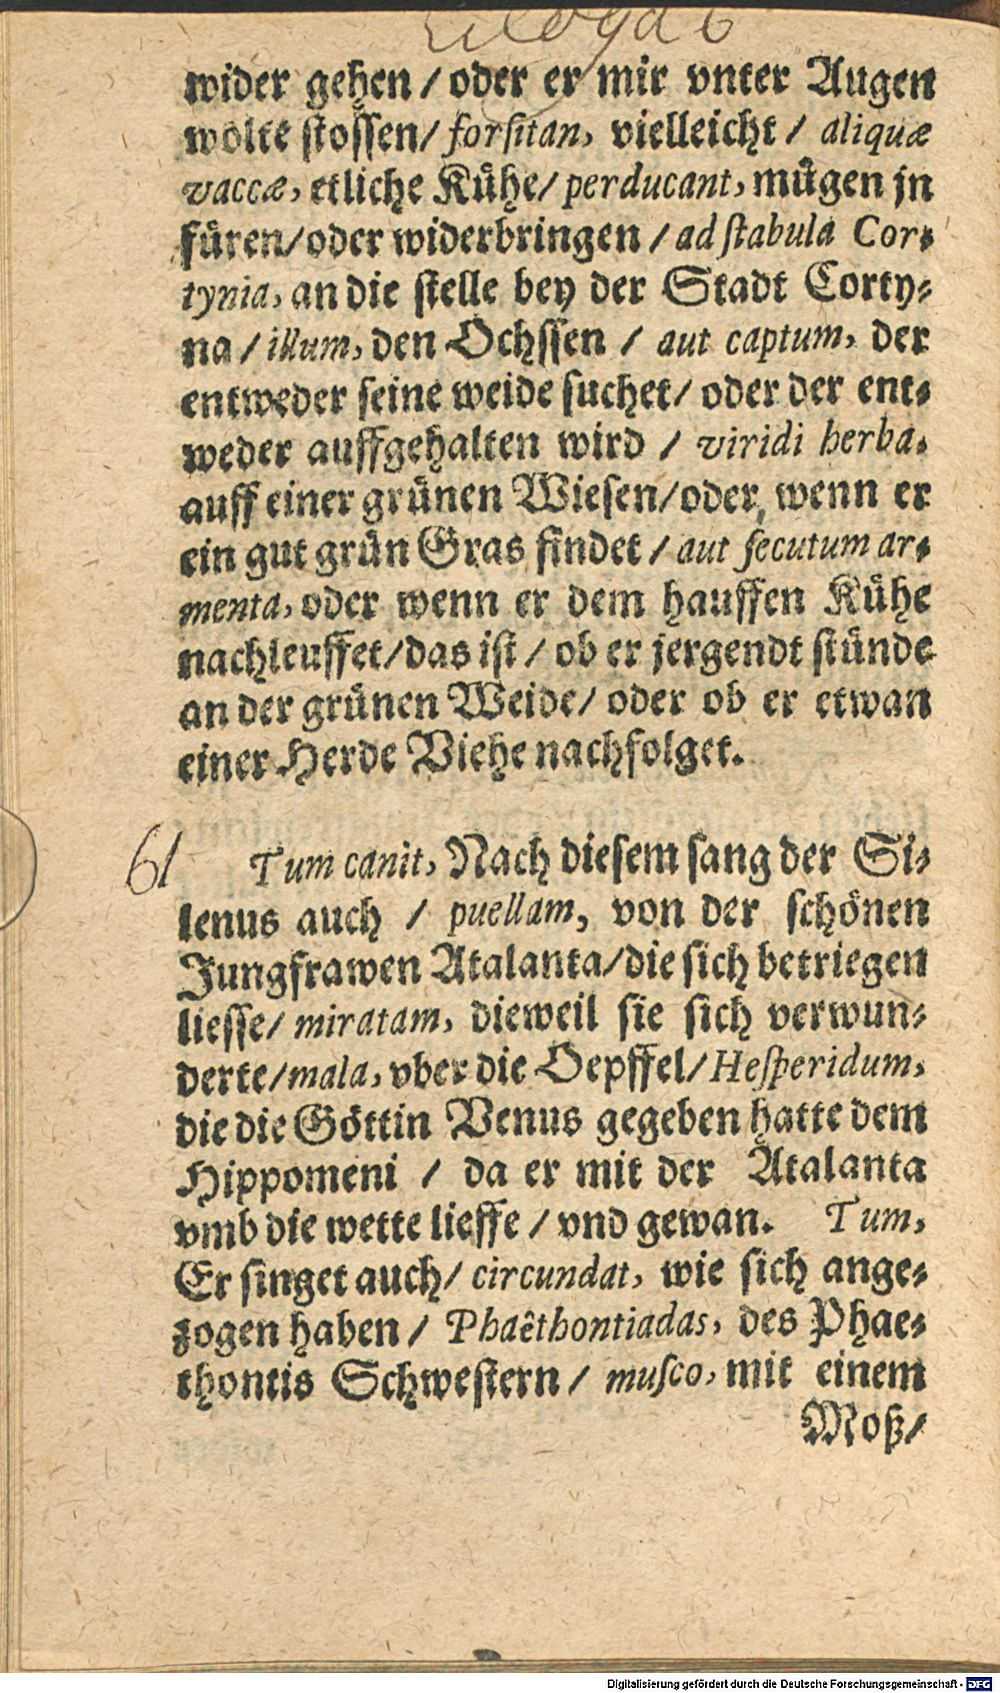 Eclogda 6
wider gehen / oder er mir vnter Augen
wolte stossen / forsitan, vielleicht / aliquæ
vaccæ, etliche Kuͤhe / perducant, muͤgen jn
fuͤren / oder widerbringen / ad stabula Cor⸗
tynia, an die stelle bey der Stadt Corty⸗
na / illum, den Ochssen / aut captum, der
entweder seine weide suchet / oder der ent⸗
weder auffgehalten wird / viridi herba,
auff einer gruͤnen Wiesen / oder, wenn er
ein gut gruͤn Gras findet / aut secutum ar⸗
menta, oder wenn er dem hauffen Kuͤhe
nachleuffet / das ist / ob er jergendt stuͤnde
an der gruͤnen Weide / oder ob er etwan
einer Herde Viehe nachfolget.
61 Tum canit, Nach diesem sang der Si⸗
lenus auch / puellam, von der schoͤnen
Jungfrawen Atalanta / die sich betriegen
liesse / miratam, dieweil sie sich verwun⸗
derte / mala, vber die Oepffel / Hesperidum,
die die Goͤttin Venus gegeben hatte dem
Hippomeni / da er mit der Atalanta
vmb die wette lieffe / vnd gewan. Tum,
Er singet auch / circundat, wie sich ange⸗
zogen haben / Phaêthontiadas, des Phae⸗
thontis Schwestern / musco, mit einem
Moß /
Digitalisierung gefördert durch die Deutsche Forschungsgemeinschaft - DFG